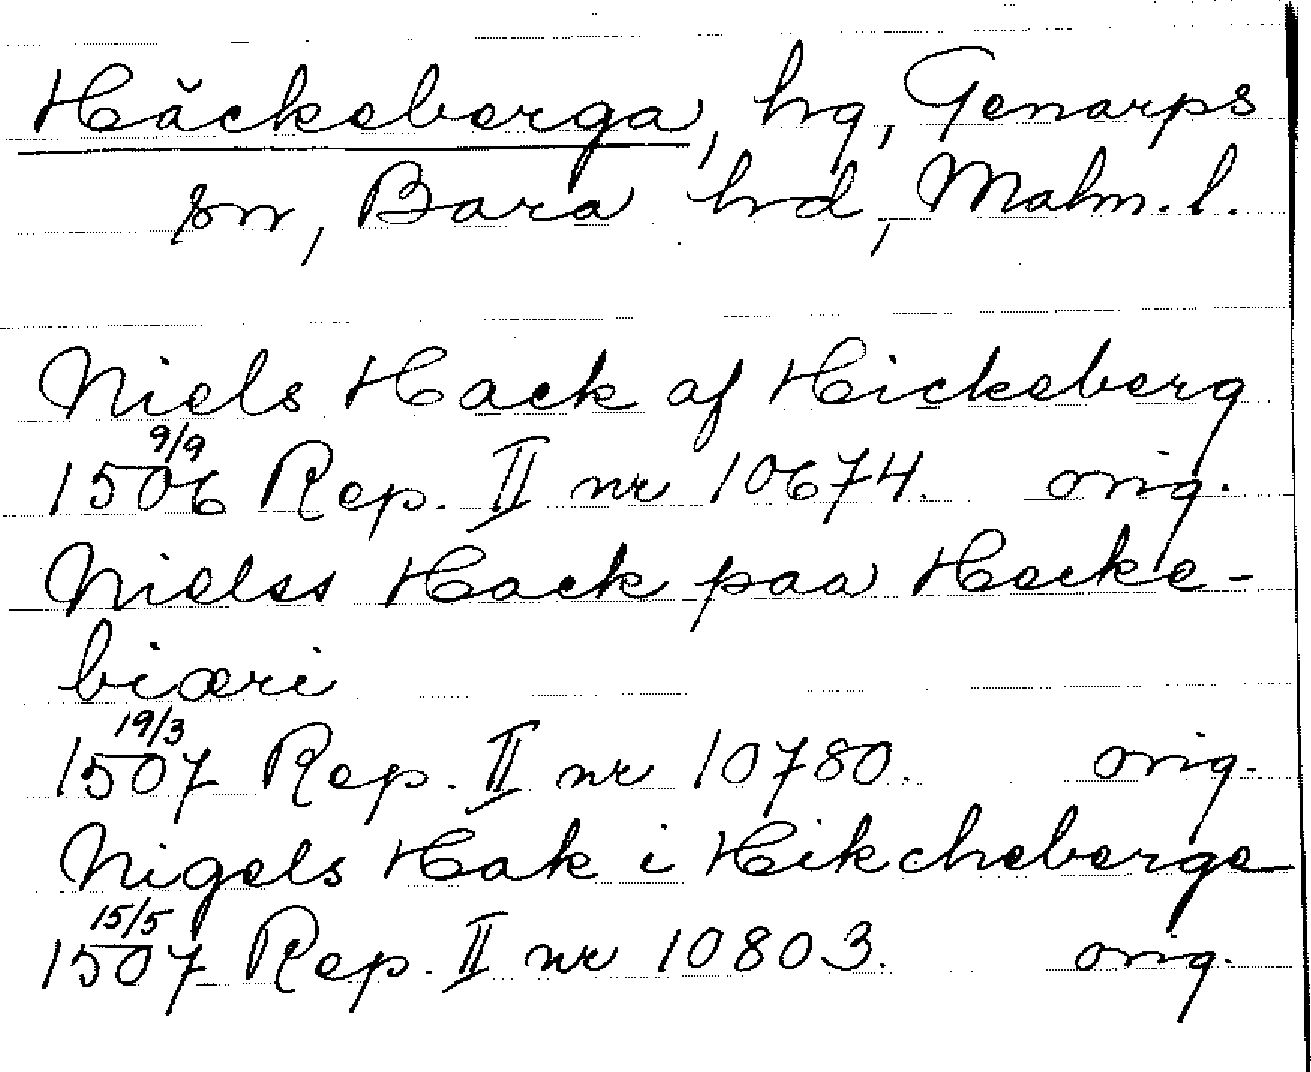 Häckeberga, hg, Genarps
sn, Bara hrd, Malm. l.
Niels Hack af Hickeberg
9/9
1506 Rep. II nr 10674. orig.
Nielss Hack paa Hecke-
biæri
19/3
1507 Rep. II nr 10780. orig.
Nigels Hak i Hikcheberge
15/5
1507 Rep. II nr 10803. orig.